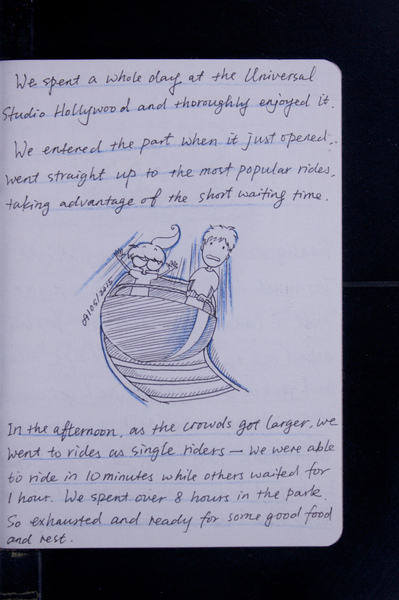 We spent a whole day at the Universal
Studio Hollywood and thoroughly enjoyed it.
We entered the part when it just opened.
went straight up to the most popular rides.
taking advantage of the short waiting time.
09/05/2015
In the afternoon, as the crowds got larger, we
went to rides as single riders — we were able
to ride in 10 minutes while others waited for
1 hour. We spent over 8 hours in the park.
So exhausted and ready for some good food
and rest.